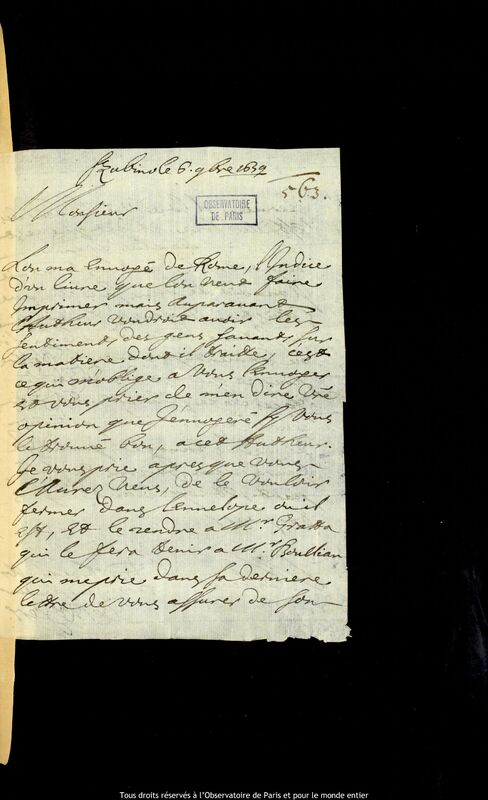 le 6. 9bre 1659
563.
Monsieur
OBSERVATOIRE
DE PARIS
Lon ma Envoyé de Rome, l'Indice
d'un livre que lon veut faire
Imprimer mais auparavant
l'Autheur voudroit avoir les
sentiments des gens savants sur
la matiere dont il traite, cest
ce qui m'oblige a vous l'envoyer
et vous prier de m'en dire vre
opinion que J'envoyeré sy vous
le trouvé bon, a cet Autheur.
Je vous prie apres que vous
l'Aurez veu, de le vouloir
fermer dans l'envelope ou il
est, Et le rendre a Mr. Gratta
qui le fera tenir a Mr. Boullian
qui me prie dans sa derniere
lettre de vous assurer de son
Tous droits réservés à l'Observatoire de Paris et pour le monde entier